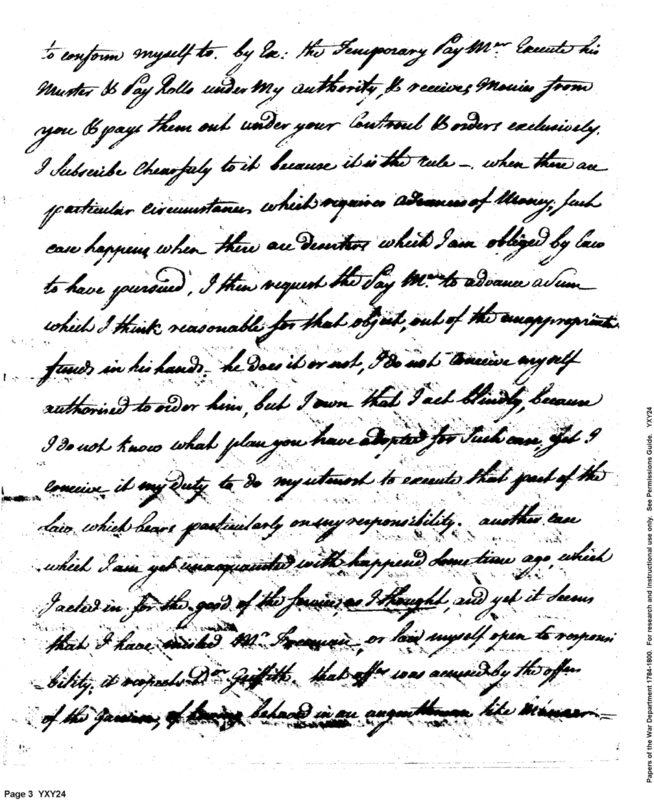 to conform myself to. by Ex: the Temporary Pay Mr Execute his
Muster & Pay Rolls under My authority, & receives Monies from
you & pays them out under your Controul & orders exclusively.
I Subscribe Chearfuly to it because it is the rule –. when there are
particular circumstances which requires advances of Money, Such
case happens when there are deserters which I am obliged by Law
to have pursued, I then request the Pay Mr to advance a Sum
which I think reasonable for that object, out of the unappropriate
funds in his hands – he does it or not, I do not Conceive myself
authorised to order him, but I own that I act blindly, because
I do not know what plan you have adopted for Such case, yet I
Conceive it my duty to do my utmost to execute that part of the
Law which bears particularly on my responsibility. another case
which I am yet unacquainted with happend Some time ago, which
I acted in for the good of the Service, as I thought, and yet it Seems
that I have misled Mr Freeman, or laid myself open to responsi
bility, it respects Dr Griffith. that offr was accused by the offrs
of the Garrison, of having behaved in an ungentleman like manner –
Page 3 YXY24
Papers of the War Department 1784-1800. For research and instructional use only. See Permissions Guide. YXY24